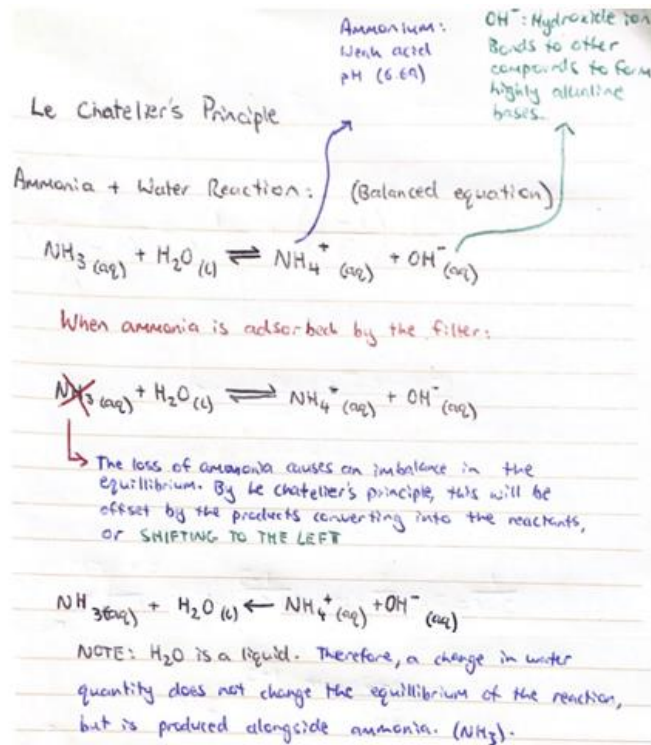 Ammonium:
Weak acid
pH (6.69)
OH⁻: Hydroxide ion
Bonds to other
compounds to form
highly alkaline
bases.
Le Chatelier's Principle
Ammonia + Water Reaction: (Balanced equation)
NH₃ (aq) + H₂O (l) ⇌ NH₄⁺ (aq) + OH⁻ (aq)
When ammonia is adsorbed by the filter:
NH₃ (aq) + H₂O (l) ⇌ NH₄⁺ (aq) + OH⁻ (aq)
The loss of ammonia causes an imbalance in the
equillibrium. By Le chatelier's principle, this will be
offset by the products converting into the reactants,
or SHIFTING TO THE LEFT
NH₃(aq) + H₂O (l) ← NH₄⁺ (aq) + OH⁻ (aq)
NOTE: H₂O is a liquid. Therefore, a change in water
quantity does not change the equillibrium of the reaction,
but is produced alongside ammonia. (NH₃).